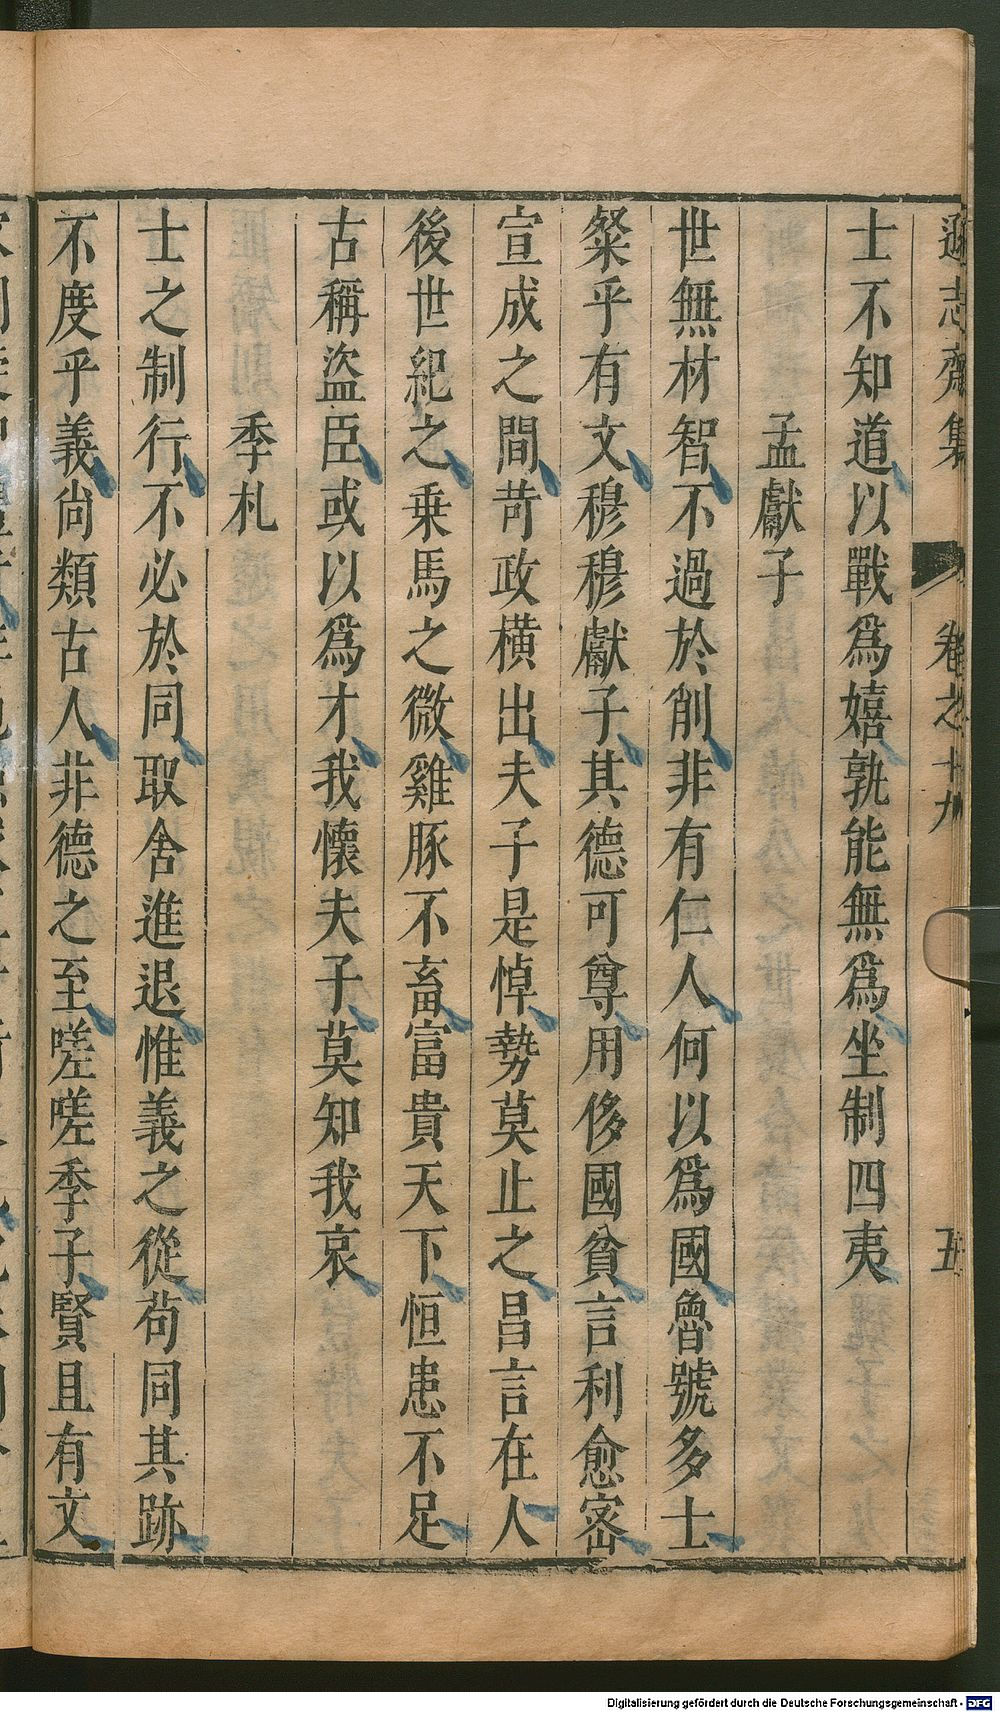 遜志齋集 卷之十九 五
士不知道以戰爲嬉孰能無爲坐制四夷
孟獻子
世無材智不過於削非有仁人何以爲國魯號多士
粲乎有文穆穆獻子其德可尊用侈國貧言利愈密
宣成之間苛政橫出夫子是悼勢莫止之昌言在人
後世紀之乗馬之微雞豚不畜富貴天下恒患不足
古稱盜臣或以爲才我懷夫子莫知我哀
季札
士之制行不必於同取舍進退惟義之從苟同其跡
不度乎義尚類古人非德之至嗟嗟季子賢且有文
Digitalisierung gefördert durch die Deutsche Forschungsgemeinschaft - DFG